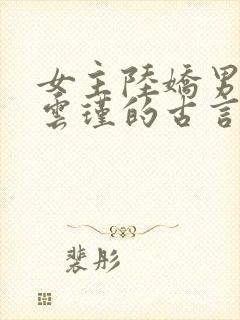 女主陸嬌男
雲瑾的古言
裴彤